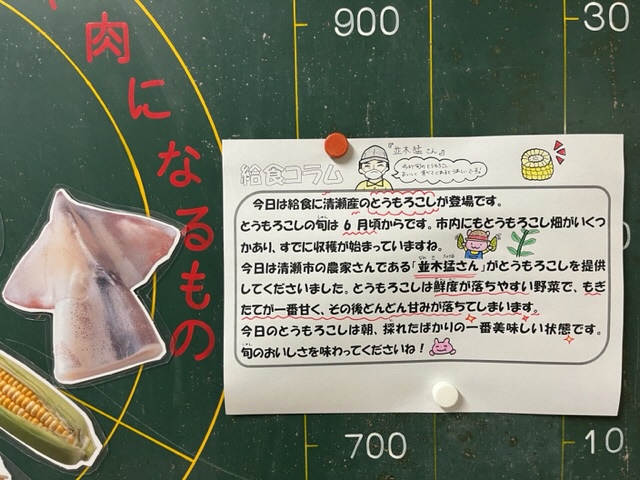 肉になるもの
900
30
『並木猛さん』
給食コラム
今日は給食に清瀬産のとうもろこしが登場です。
とうもろこしの旬は6月頃からです。市内にもとうもろこし畑がいくつ
かあり、すでに収穫が始まっていますね。
今日は清瀬市の農家さんである「並木猛さん」がとうもろこしを提供
してくださいました。とうもろこしは鮮度が落ちやすい野菜で、もぎ
たてが一番甘く、その後どんどん甘みが落ちてしまいます。
今日のとうもろこしは朝、採れたばかりの一番美味しい状態です。
旬のおいしさを味わってくださいね！
700
10